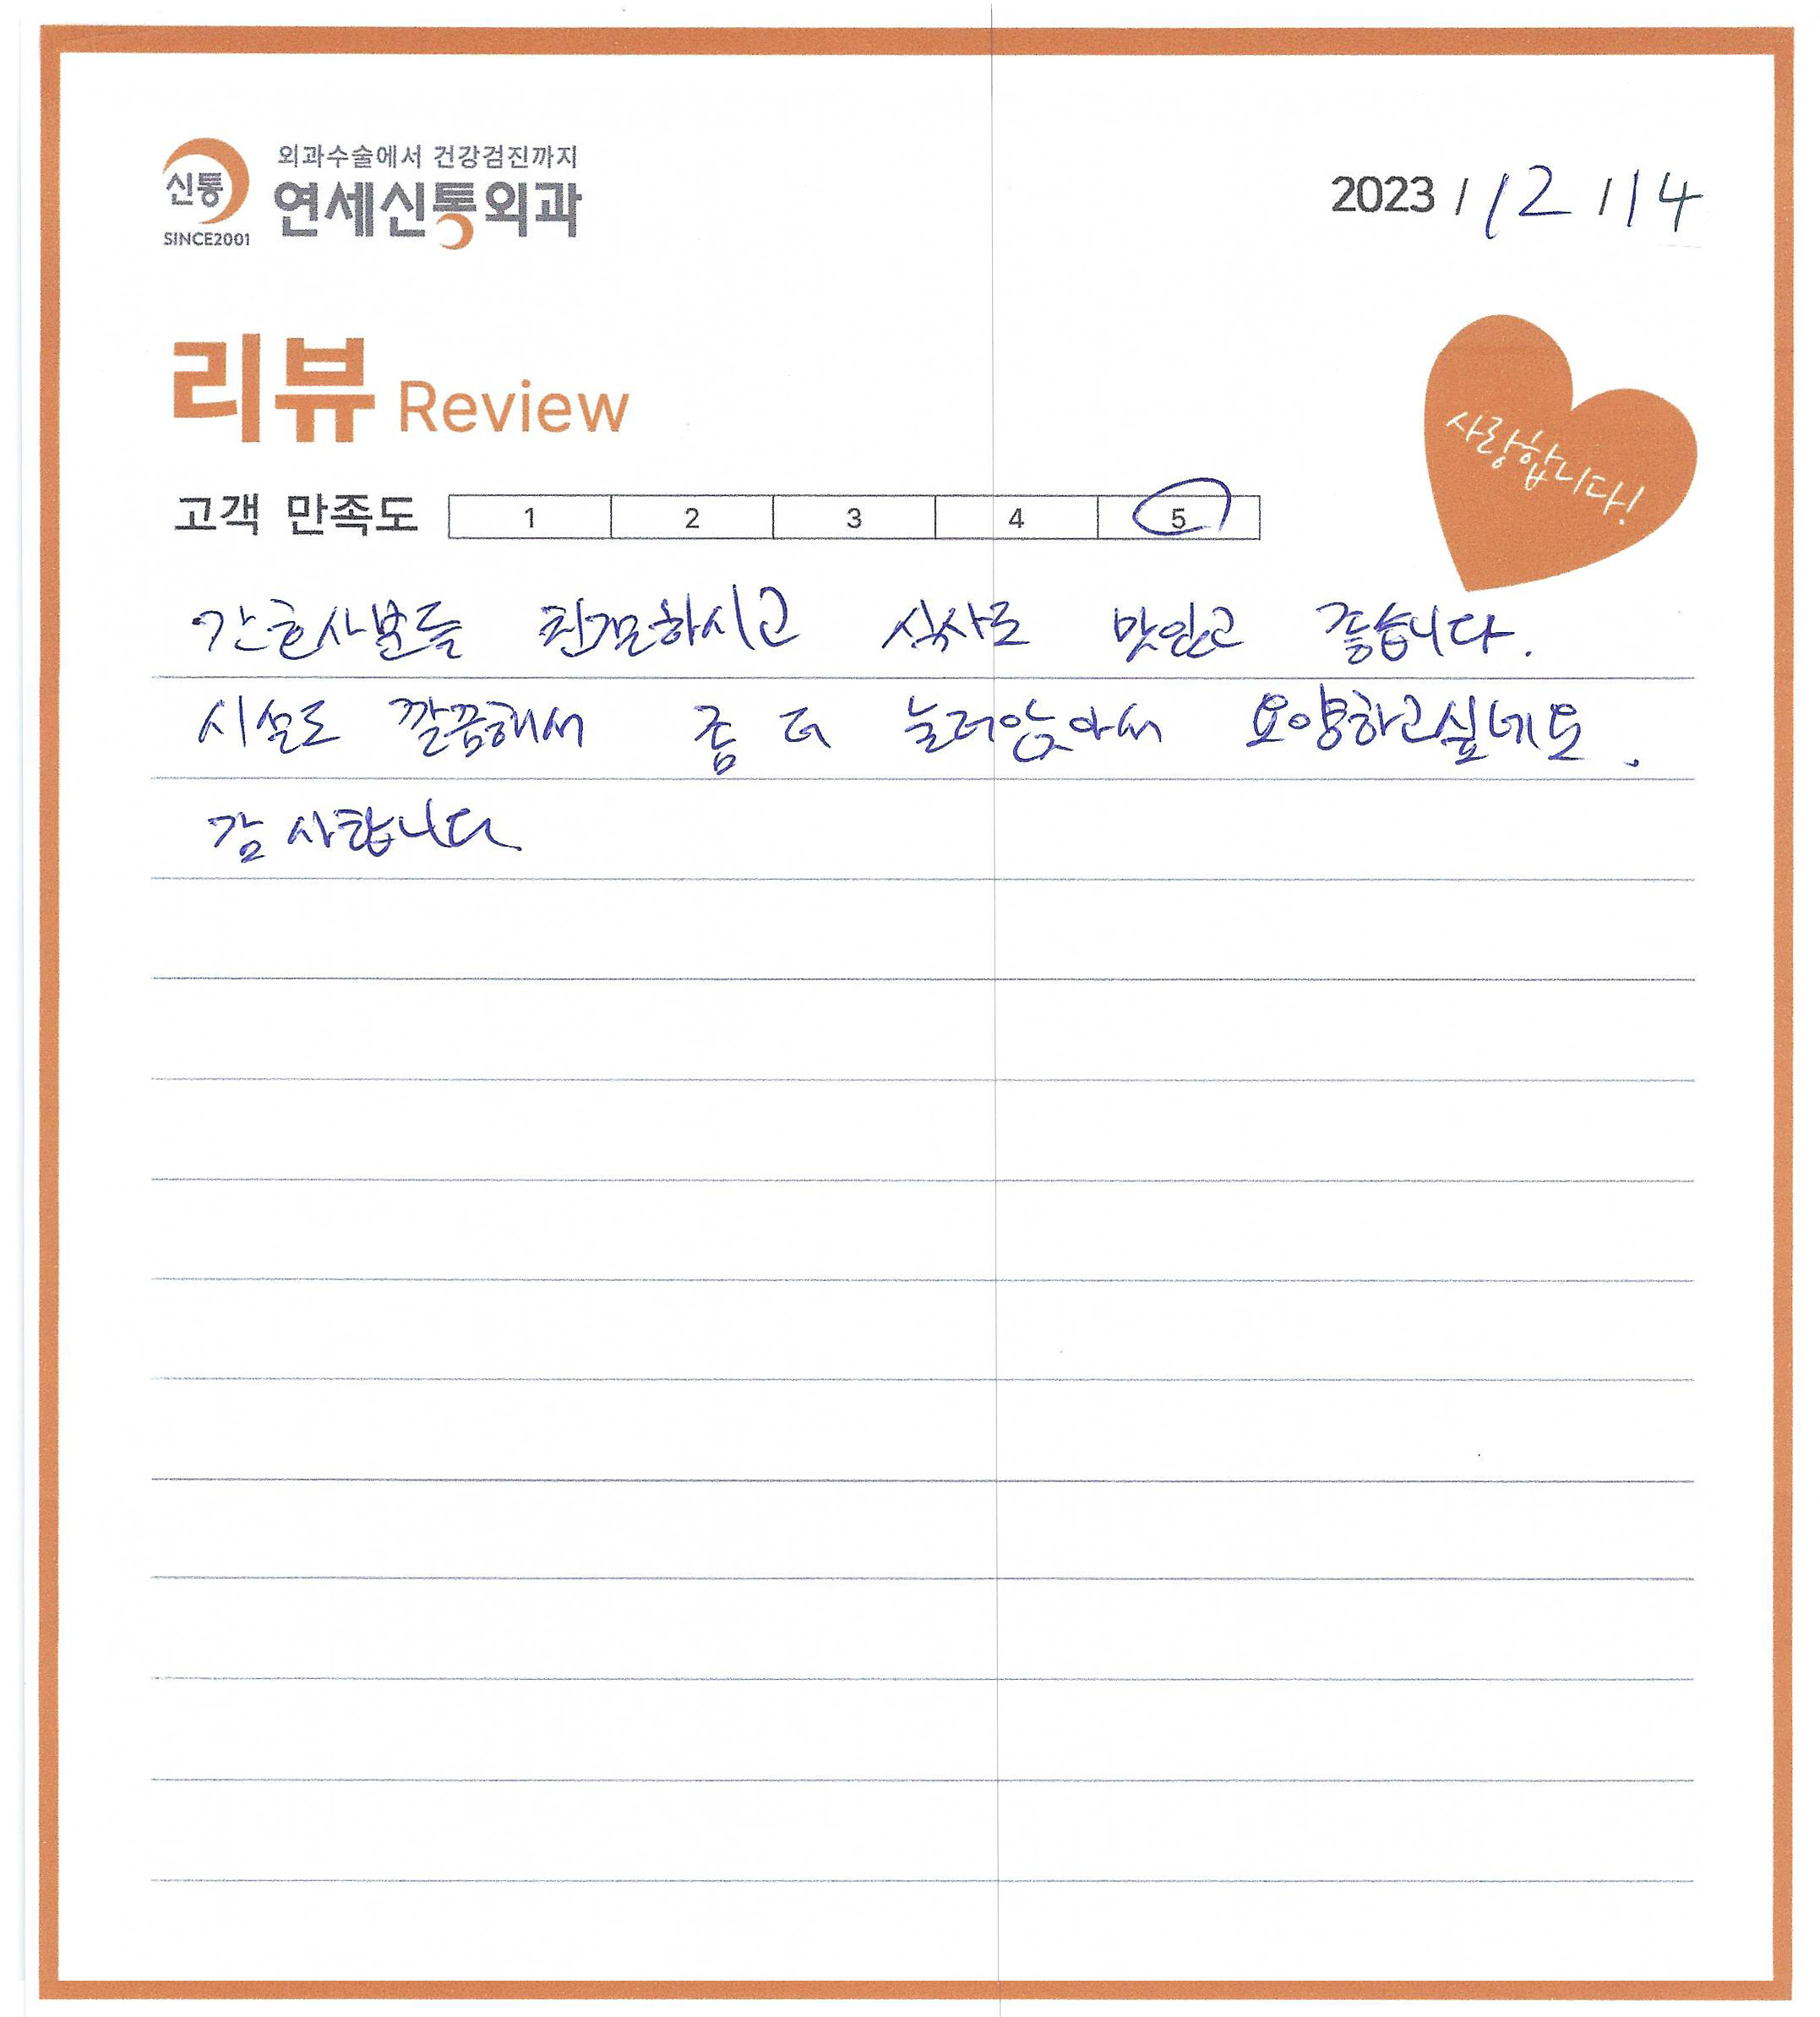 신통
SINCE2001
외과수술에서 건강검진까지
연세신통외과
2023 / 12 / 14
리뷰 Review
사랑합니다!
고객 만족도 1 2 3 4 5
간호사분들 친절하시고 식사도 맛있고 좋습니다.
시설도 깔끔해서 좀 더 눌러앉아서 요양하고싶네요.
감사합니다